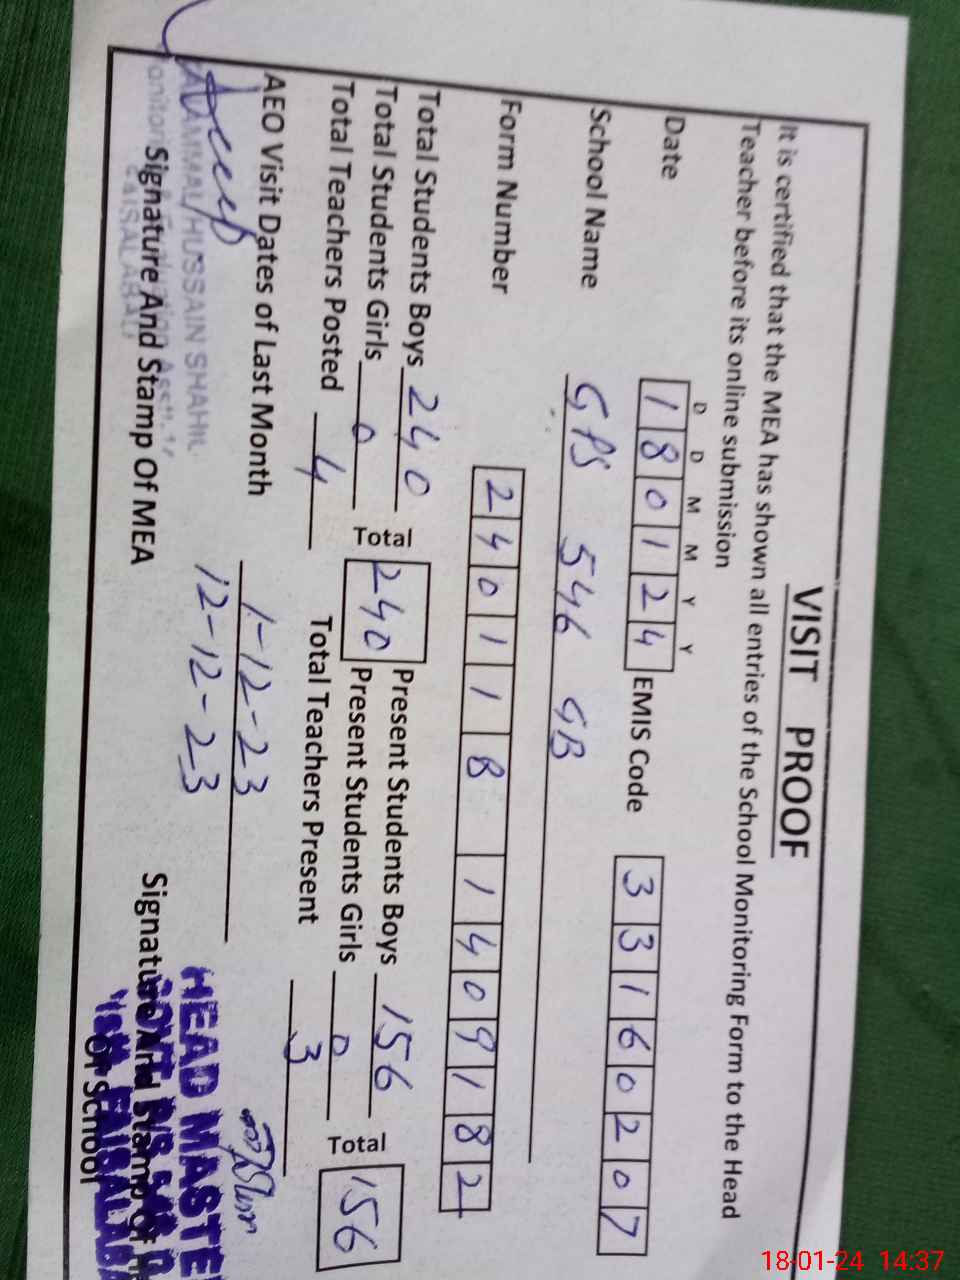 VISIT PROOF
It is certified that the MEA has shown all entries of the School Monitoring Form to the Head
Teacher before its online submission
D D M M Y Y
Date 1 8 0 1 2 4 EMIS Code 3 3 1 6 0 2 0 7
School Name GPS 546 GB
Form Number 2 4 0 1 1 8 1 4 0 9 1 8 2
Total Students Boys 240 Total 240 Present Students Boys 156 Total 156
Total Students Girls 0 Present Students Girls 0
Total Teachers Posted 4 Total Teachers Present 3
AEO Visit Dates of Last Month 1-12-23
12-12-23
HUSSAIN SHAHI
Signature And Stamp Of MEA
FAISALABAD
HEAD MASTE
Signature And Stamp Of
Of School
18-01-24 14:37